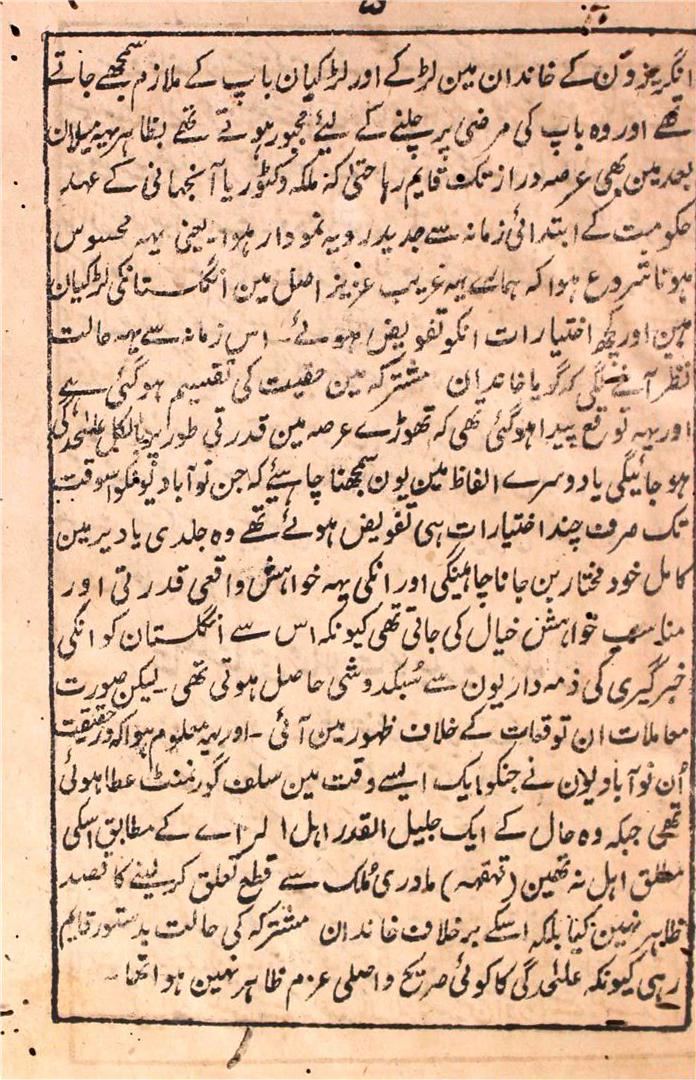 ۵
انگریزون کے خاندان مین لڑکے اور لڑکیان باپ کے ملازم سمجھے جاتے
تھے اور وہ باپ کی مرضی پر چلنے کے لیئے مجبور ہوتے تھے بظاہر یہہ میلان
بعد مین بھی عرصہ دراز تک قایم رہا حتی کہ ملکہ وکٹوریا آنجہانی کے عہد
حکومت کے ابتدائی زمانہ سے جدید رویہ نمودار ہوا۔ یعنی یہہ محسوس
ہونا شروع ہوا کہ ہمارے یہہ غریب عزیز اصل مین انگلستانکی لڑکیان
ہین اور کچھ اختیارات انکو تفویض ہوئے۔ اس زمانہ سے یہہ حالت
نظر آنے لگی کہ گویا خاندان مشترکہ مین حقیت کی تقسیم ہوگئی ہے
اور یہہ توقع پیدا ہوگئی تھی کہ تھوڑے عرصہ مین قدرتی طور پر بالکل علٰحدگی
ہو جائیگی یا دوسرے الفاظ مین یون سمجھنا چاہیئے کہ جن نوآبادیونکو اسوقت
تک صرف چند اختیارات ہی تفویض ہوئے تھے وہ جلدی یا دیر مین
کامل خود مختار بن جانا چاہینگی اور انکی یہہ خواہش واقعی قدرتی اور
مناسب خواہش خیال کی جاتی تھی کیونکہ اس سے انگلستان کو انکی
خبرگیری کی ذمہ داریون سے سُبکدوشی حاصل ہوتی تھی۔ لیکن صورت
معاملات ان توقعات کے خلاف ظہور مین آئی۔ اور یہہ معلوم ہوا کہ درحقیقت
اُن نوآبادیون نے جنکو ایک ایسے وقت مین سلف گورنمنٹ عطا ہوئی
تھی جبکہ وہ حال کے ایک جلیل القدر اہل الراے کے مطابق اسکی
مطلق اہل نہ تھین (قہقہہ) مادری مُلک سے قطع تعلق کر لینے کا قصد
ظاہر نہین کیا بلکہ اسکے برخلاف خاندان مشترکہ کی حالت بدستور قایم
رہی کیونکہ علٰحدگی کا کوئی صریح و اصلی عزم ظاہر نہین ہوا تھا۔